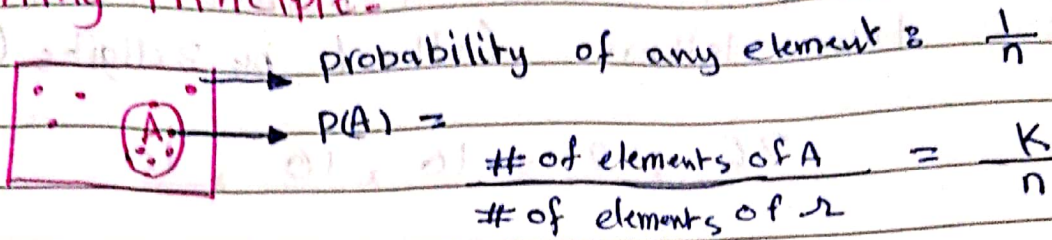 probability of any element : 1/n
A
P(A) =
# of elements of A / # of elements of Ω = K/n